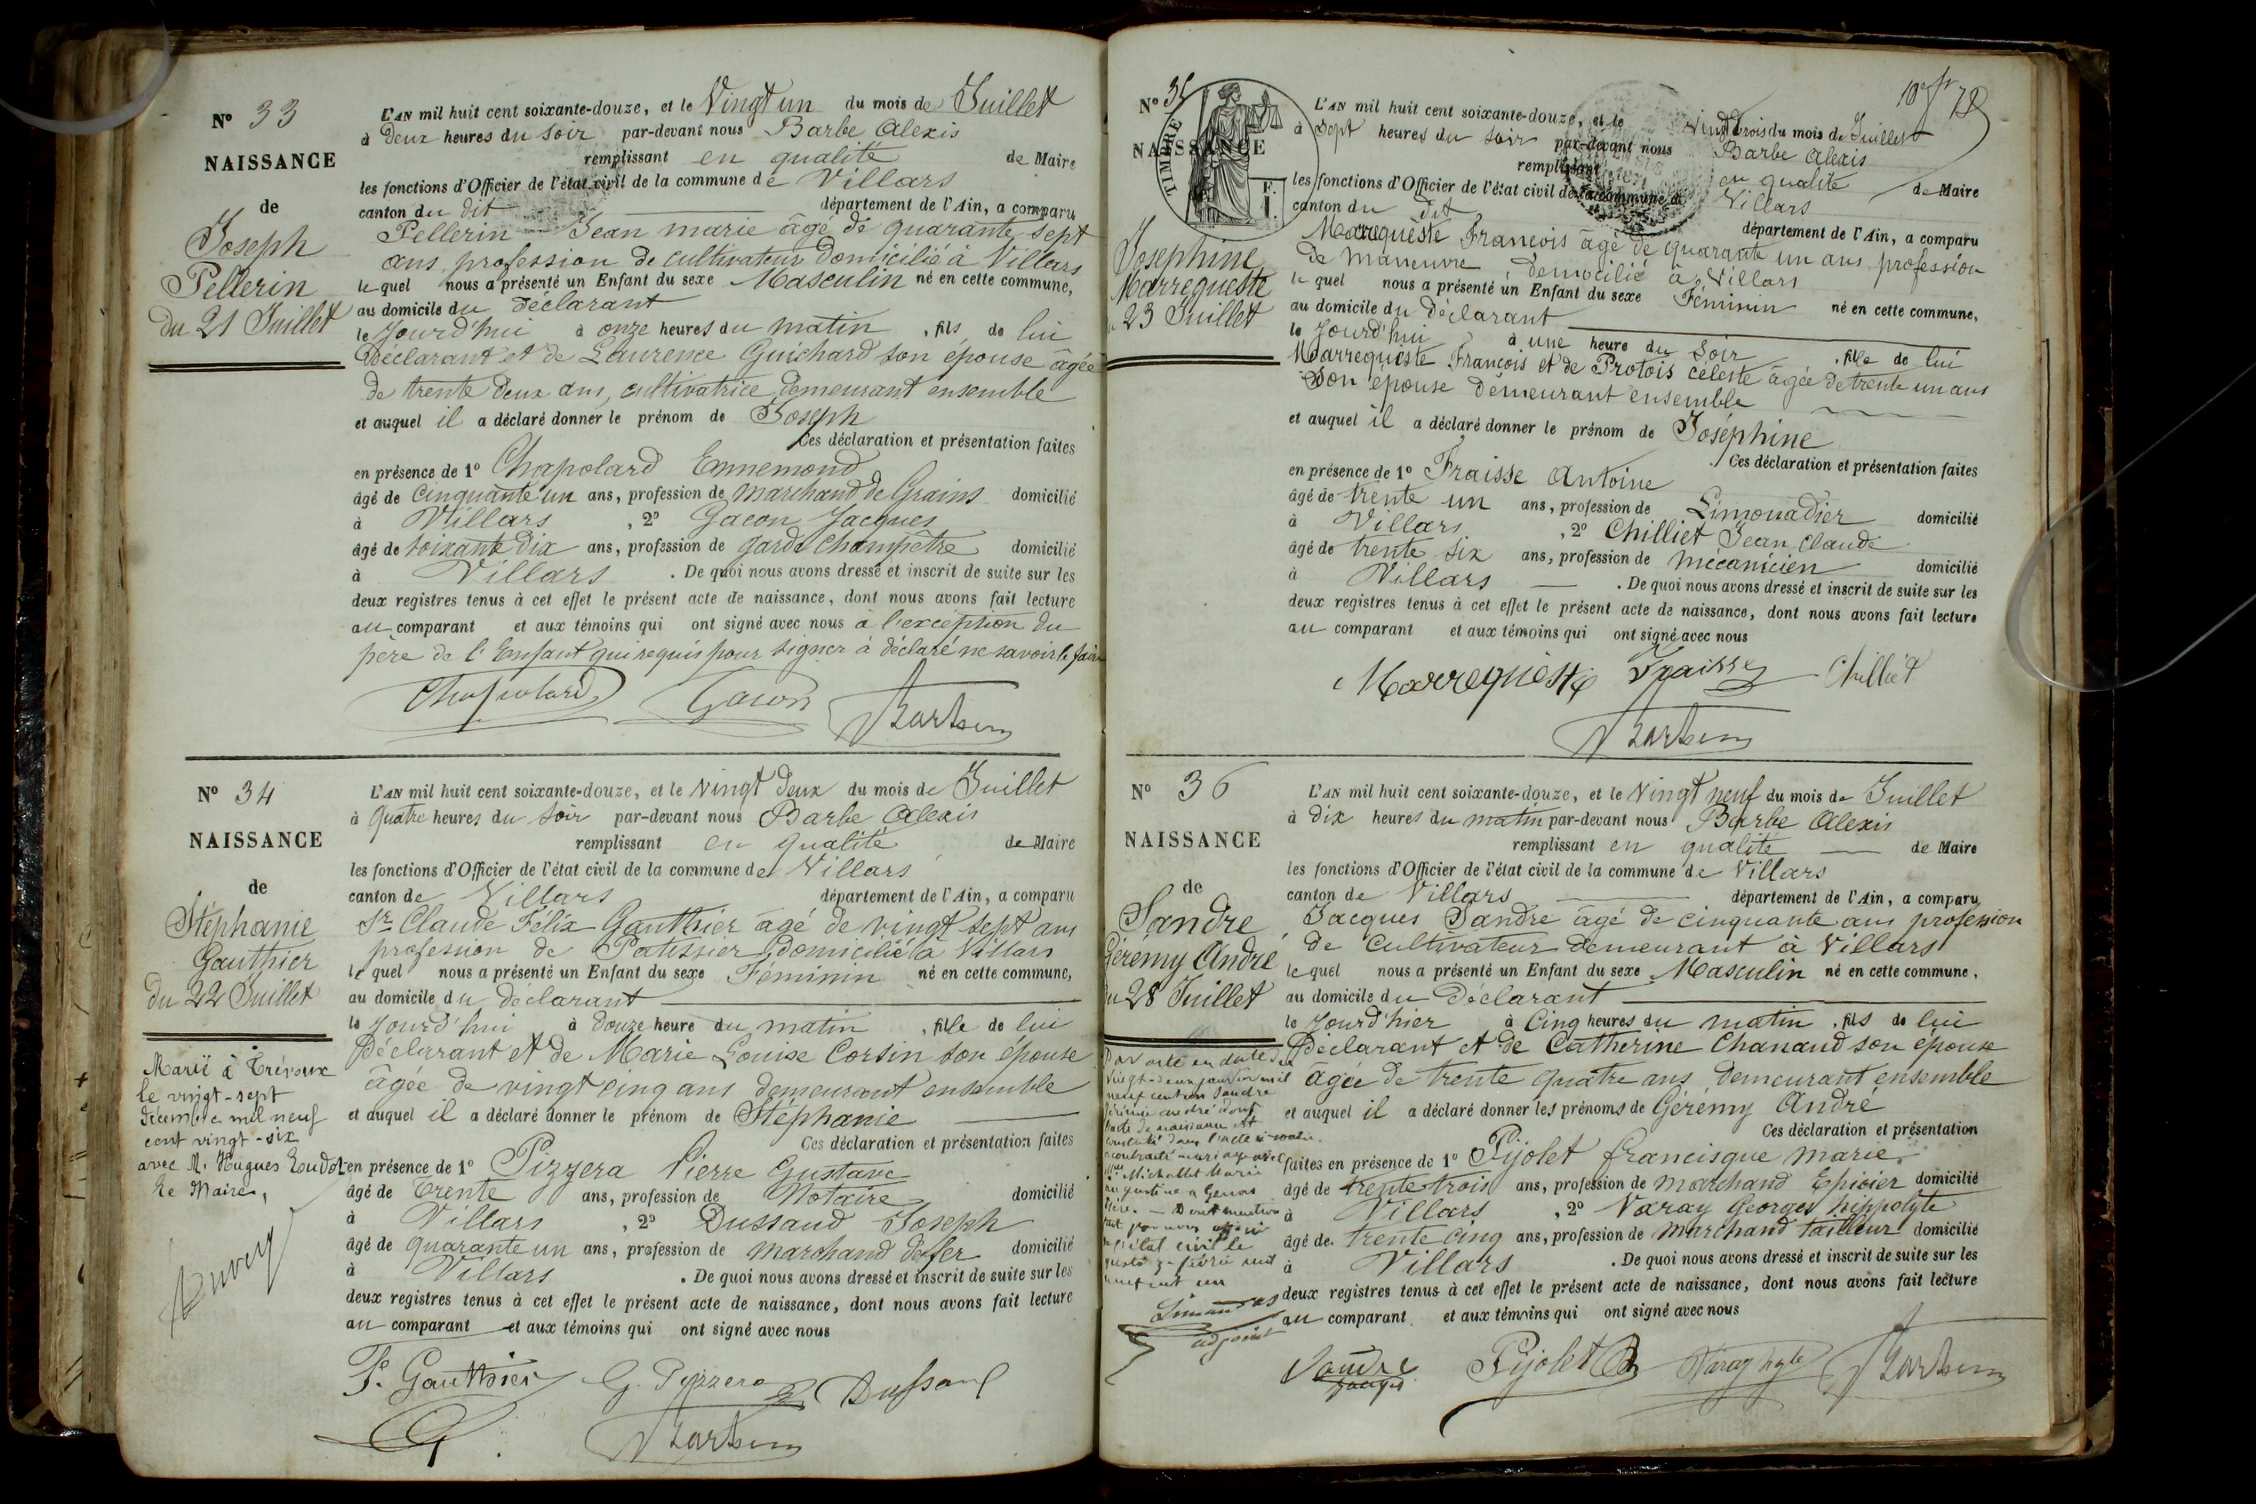 N° 33
NAISSANCE
de
Joseph
Pellerin
du 21 Juillet
L'AN mil huit cent soixante-douze, et le Vingt un du mois de Juillet
à Deux heures du Soir par-devant nous Barbe Alexis
remplissant en qualité de Maire
les fonctions d'Officier de l'état civil de la commune de Villars
canton du dit département de l'Ain, a comparu
Pellerin Jean marie âgé de quarante sept
ans profession de cultivateur domicilié à Villars
lequel nous a présenté un Enfant du sexe Masculin né en cette commune,
au domicile du déclarant
le Jourd'hui à onze heures du matin, fils de lui
Déclarant et de Laurence Guichard son épouse âgée
de trente deux ans, cultivatrice demeurant ensemble
et auquel il a déclaré donner le prénom de Joseph
Ces déclaration et présentation faites
en présence de 1° Chapolard Ennemond
âgé de Cinquante un ans, profession de marchand de Grains domicilié
à Villars, 2° Gacon Jacques
âgé de soixante dix ans, profession de garde champêtre domicilié
à Villars. De quoi nous avons dressé et inscrit de suite sur les
deux registres tenus à cet effet le présent acte de naissance, dont nous avons fait lecture
au comparant et aux témoins qui ont signé avec nous à l'exception du
père de l'Enfant qui requis pour signer à déclaré ne savoir le faire
Chapolard Gacon Barbe
N° 34
NAISSANCE
de
Stéphanie
Gauthier
du 22 Juillet
Marié à Trévoux
le vingt-sept
décembre mil neuf
cent vingt-six
avec M. Hugues
Le Maire,
L'AN mil huit cent soixante-douze, et le vingt deux du mois de Juillet
à Quatre heures du Soir par-devant nous Barbe Alexis
remplissant en qualité de Maire
les fonctions d'Officier de l'état civil de la commune de Villars
canton de Villars département de l'Ain, a comparu
Sr Claude Félix Gauthier âgé de vingt sept ans
profession de Patissier domicilié à Villars
le quel nous a présenté un Enfant du sexe Féminin né en cette commune,
au domicile du déclarant
le Jourd'hui à douze heure du matin, fille de lui
Déclarant et de Marie Louise Corsin son épouse
âgée de vingt cinq ans demeurant ensemble
et auquel il a déclaré donner le prénom de Stéphanie
Ces déclaration et présentation faites
en présence de 1° Pizzera Pierre Gustave
âgé de Trente ans, profession de Notaire domicilié
à Villars, 2° Dussaud Joseph
âgé de quarante un ans, profession de marchand de fer domicilié
à Villars. De quoi nous avons dressé et inscrit de suite sur les
deux registres tenus à cet effet le présent acte de naissance, dont nous avons fait lecture
au comparant et aux témoins qui ont signé avec nous
F. Gauthier G. Pizzera Dussaud
Barbe
N° 35
TIMBRE
F.
1
NAISSANCE
Joséphine
Marrequeste
23 Juillet
L'AN mil huit cent soixante-douze, et le Vingt trois du mois de Juillet
à Sept heures du Soir par-devant nous Barbe Alexis
remplissant en qualité de Maire
les fonctions d'Officier de l'état civil de la commune de Villars
canton du dit département de l'Ain, a comparu
Marrequeste François âgé de quarante un ans profession
de Maneuvre, domicilié à Villars
le quel nous a présenté un Enfant du sexe Féminin né en cette commune,
au domicile du déclarant
le Jourd'hui à une heure du Soir, fille de lui
Marrequeste François et de Protois céleste âgée de trente un ans
son épouse demeurant ensemble
et auquel il a déclaré donner le prénom de Joséphine
Ces déclaration et présentation faites
en présence de 1° Fraisse Antoine
âgé de trente un ans, profession de Limonadier domicilié
à Villars, 2° Chilliet Jean Claude
âgé de trente six ans, profession de mécanicien domicilié
à Villars. De quoi nous avons dressé et inscrit de suite sur les
deux registres tenus à cet effet le présent acte de naissance, dont nous avons fait lecture
au comparant et aux témoins qui ont signé avec nous
Marrequeste Fraisse Chilliet
Barbe
N° 36
NAISSANCE
de
Sandre
Gérémy André
du 28 Juillet
L'AN mil huit cent soixante-douze, et le Vingt neuf du mois de Juillet
à dix heures du matin par-devant nous Barbe Alexis
remplissant en qualité de Maire
les fonctions d'Officier de l'état civil de la commune de Villars
canton de Villars département de l'Ain, a comparu
Jacques Sandre âgé de cinquante ans profession
de Cultivateur demeurant à Villars
le quel nous a présenté un Enfant du sexe Masculin né en cette commune,
au domicile du déclarant
le Jourd'hier à Cinq heures du matin, fils de lui
Déclarant et de Catherine Chanaud son épouse
âgée de trente quatre ans demeurant ensemble
et auquel il a déclaré donner les prénoms de Gérémy André
Ces déclaration et présentation
faites en présence de 1° Pijolet francisque marie
âgé de trente trois ans, profession de marchand Epicier domicilié
à Villars, 2° Varay Georges hippolyte
âgé de trente cinq ans, profession de marchand tailleur domicilié
à Villars. De quoi nous avons dressé et inscrit de suite sur les
deux registres tenus à cet effet le présent acte de naissance, dont nous avons fait lecture
au comparant et aux témoins qui ont signé avec nous
Sandre Pijolet Varay Barbe
adjoint